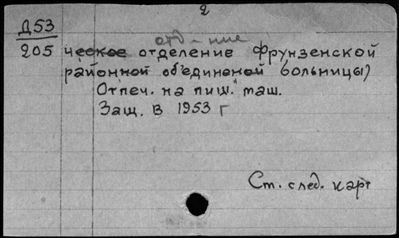 2
Д53
205 ческое отделение Фрунзенской
районной объединеной больницы)
Отпеч. на пиш. маш.
Защ. в 1953 г
Ст. след. карт